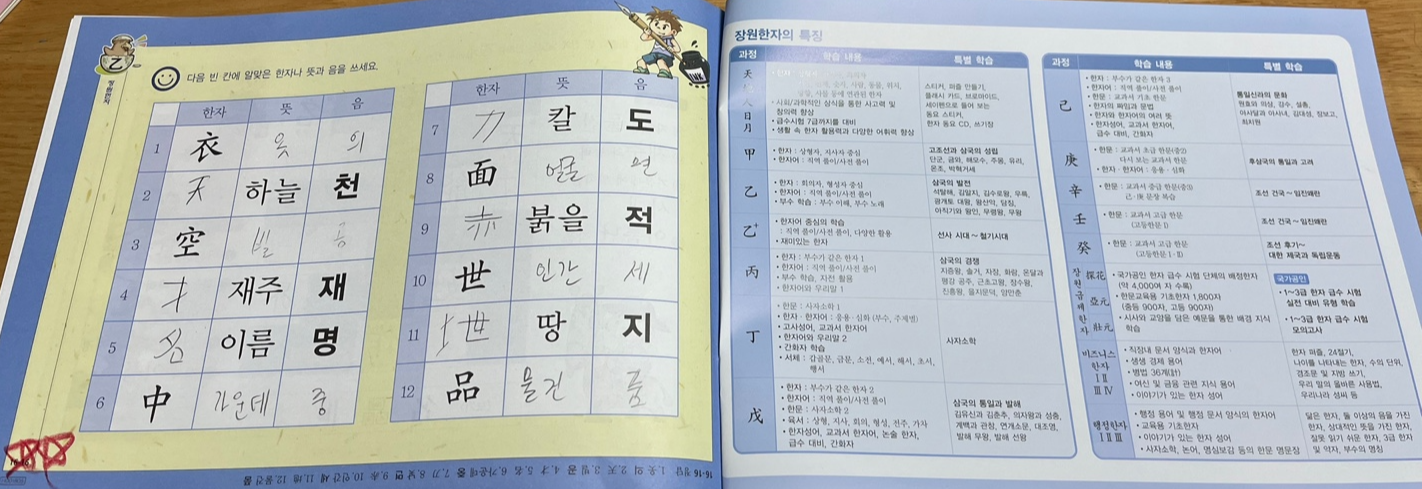 乙
장원한자
다음 빈 칸에 알맞은 한자나 뜻과 음을 쓰세요.
INK
한자 뜻 음
1 衣 옷 의
2 天 하늘 천
3 空 빌 공
4 才 재주 재
5 名 이름 명
6 中 가운데 중
한자 뜻 음
7 刀 칼 도
8 面 얼굴 면
9 赤 붉을 적
10 世 인간 세
11 地 땅 지
12 品 물건 품
16-16 정답 1.옷 의 2.天 3.빌 공 4.才 5.名 6.가운데 중 7.刀 8.낯 면 9.赤 10.인간 세 11.地 12.물건 품
장원한자의 특징
과정 학습 내용 특별 학습
天
人
日
月
• 사회/과학적인 상식을 통한 사고력 및
창의력 향상
• 급수시험 7급까지를 대비
• 생활 속 한자 활용력과 다양한 어휘력 향상
스티커, 퍼즐 만들기,
플래시 카드, 브로마이드,
세이펜으로 들어 보는
동요 스티커,
한자 동요 CD, 쓰기장
甲
• 한자 : 상형자, 지사자 중심
• 한자어 : 직역 풀이/사전 풀이
고조선과 삼국의 성립
단군, 금와, 해모수, 주몽, 유리,
온조, 박혁거세
乙
• 한자 : 회의자, 형성자 중심
• 한자어 : 직역 풀이/사전 풀이
• 부수 학습 : 부수 이해, 부수 노래
삼국의 발전
석탈해, 김알지, 김수로왕, 우륵,
광개토 대왕, 왕산악, 담징,
아직기와 왕인, 무령왕, 무왕
乙+
• 한자어 중심의 학습
: 직역 풀이/사전 풀이, 다양한 활용
• 재미있는 한자
선사 시대 ~ 철기시대
丙
• 한자 : 부수가 같은 한자 1
• 한자어 : 직역 풀이/사전 풀이
• 부수 학습, 자전 활용
• 한자어와 우리말 1
삼국의 경쟁
지증왕, 솔거, 자장, 화랑, 온달과
평강 공주, 근초고왕, 장수왕,
진흥왕, 을지문덕, 양만춘
丁
• 한문 : 사자소학 1
• 한자·한자어 : 응용·심화 (부수, 주제별)
• 고사성어, 교과서 한자어
• 한자어와 우리말 2
• 간화자 학습
• 서체 : 갑골문, 금문, 소전, 예서, 해서, 초서,
행서
사자소학
戊
• 한자 : 부수가 같은 한자 2
• 한자어 : 직역 풀이/사전 풀이
• 한문 : 사자소학 2
• 육서 : 상형, 지사, 회의, 형성, 전주, 가차
• 한자성어, 교과서 한자어, 논술 한자,
급수 대비, 간화자
삼국의 통일과 발해
김유신과 김춘추, 의자왕과 성충,
계백과 관창, 연개소문, 대조영,
발해 무왕, 발해 선왕
과정 학습 내용 특별 학습
己
• 한자 : 부수가 같은 한자 3
• 한자어 : 직역 풀이/사전 풀이
• 한문 : 교과서 기초 한문
• 한자의 짜임과 문법
• 한자와 한자어의 여러 뜻
• 한자성어, 교과서 한자어,
급수 대비, 간화자
통일신라의 문화
원효와 의상, 강수, 설총,
아사달과 아사녀, 김대성, 장보고,
최치원
庚
• 한문 : 교과서 초급 한문(중2)
다시 보는 교과서 한문
• 한자·한자어 : 응용·심화
후삼국의 통일과 고려
辛
• 한문 : 교과서 중급 한문(중3)
己·庚 문장 복습
조선 건국 ~ 임진왜란
壬
• 한문 : 교과서 고급 한문
(고등한문 I)
조선 건국 ~ 임진왜란
癸
• 한문 : 교과서 고급 한문
(고등한문 I·II)
조선 후기~
대한 제국과 독립운동
장원급제한자
探花
亞元
壯元
• 국가공인 한자 급수 시험 단체의 배정한자
(약 4,000여 자 수록)
• 한문교육용 기초한자 1,800자
(중등 900자, 고등 900자)
• 시사와 교양을 담은 예문을 통한 배경 지식
학습
국가공인
• 1~3급 한자 급수 시험
실전 대비 유형 학습
• 1~3급 한자 급수 시험
모의고사
비즈니스
한자
I II
III IV
• 직장내 문서 양식과 한자어
• 생생 경제 용어
• 병법 36계(計)
• 여신 및 금융 관련 지식 용어
• 이야기가 있는 한자 성어
한자 퍼즐, 24절기,
나이를 나타내는 한자, 수의 단위,
경조문 및 지방 쓰기,
우리 말의 올바른 사용법,
우리나라 성씨 등
행정한자
I II III
• 행정 용어 및 행정 문서 양식의 한자어
• 교육용 기초한자
• 이야기가 있는 한자 성어
• 사자소학, 논어, 명심보감 등의 한문 명문장
닮은 한자, 둘 이상의 음을 가진
한자, 상대적인 뜻을 가진 한자,
잘못 읽기 쉬운 한자, 3급 한자
및 약자, 부수의 명칭